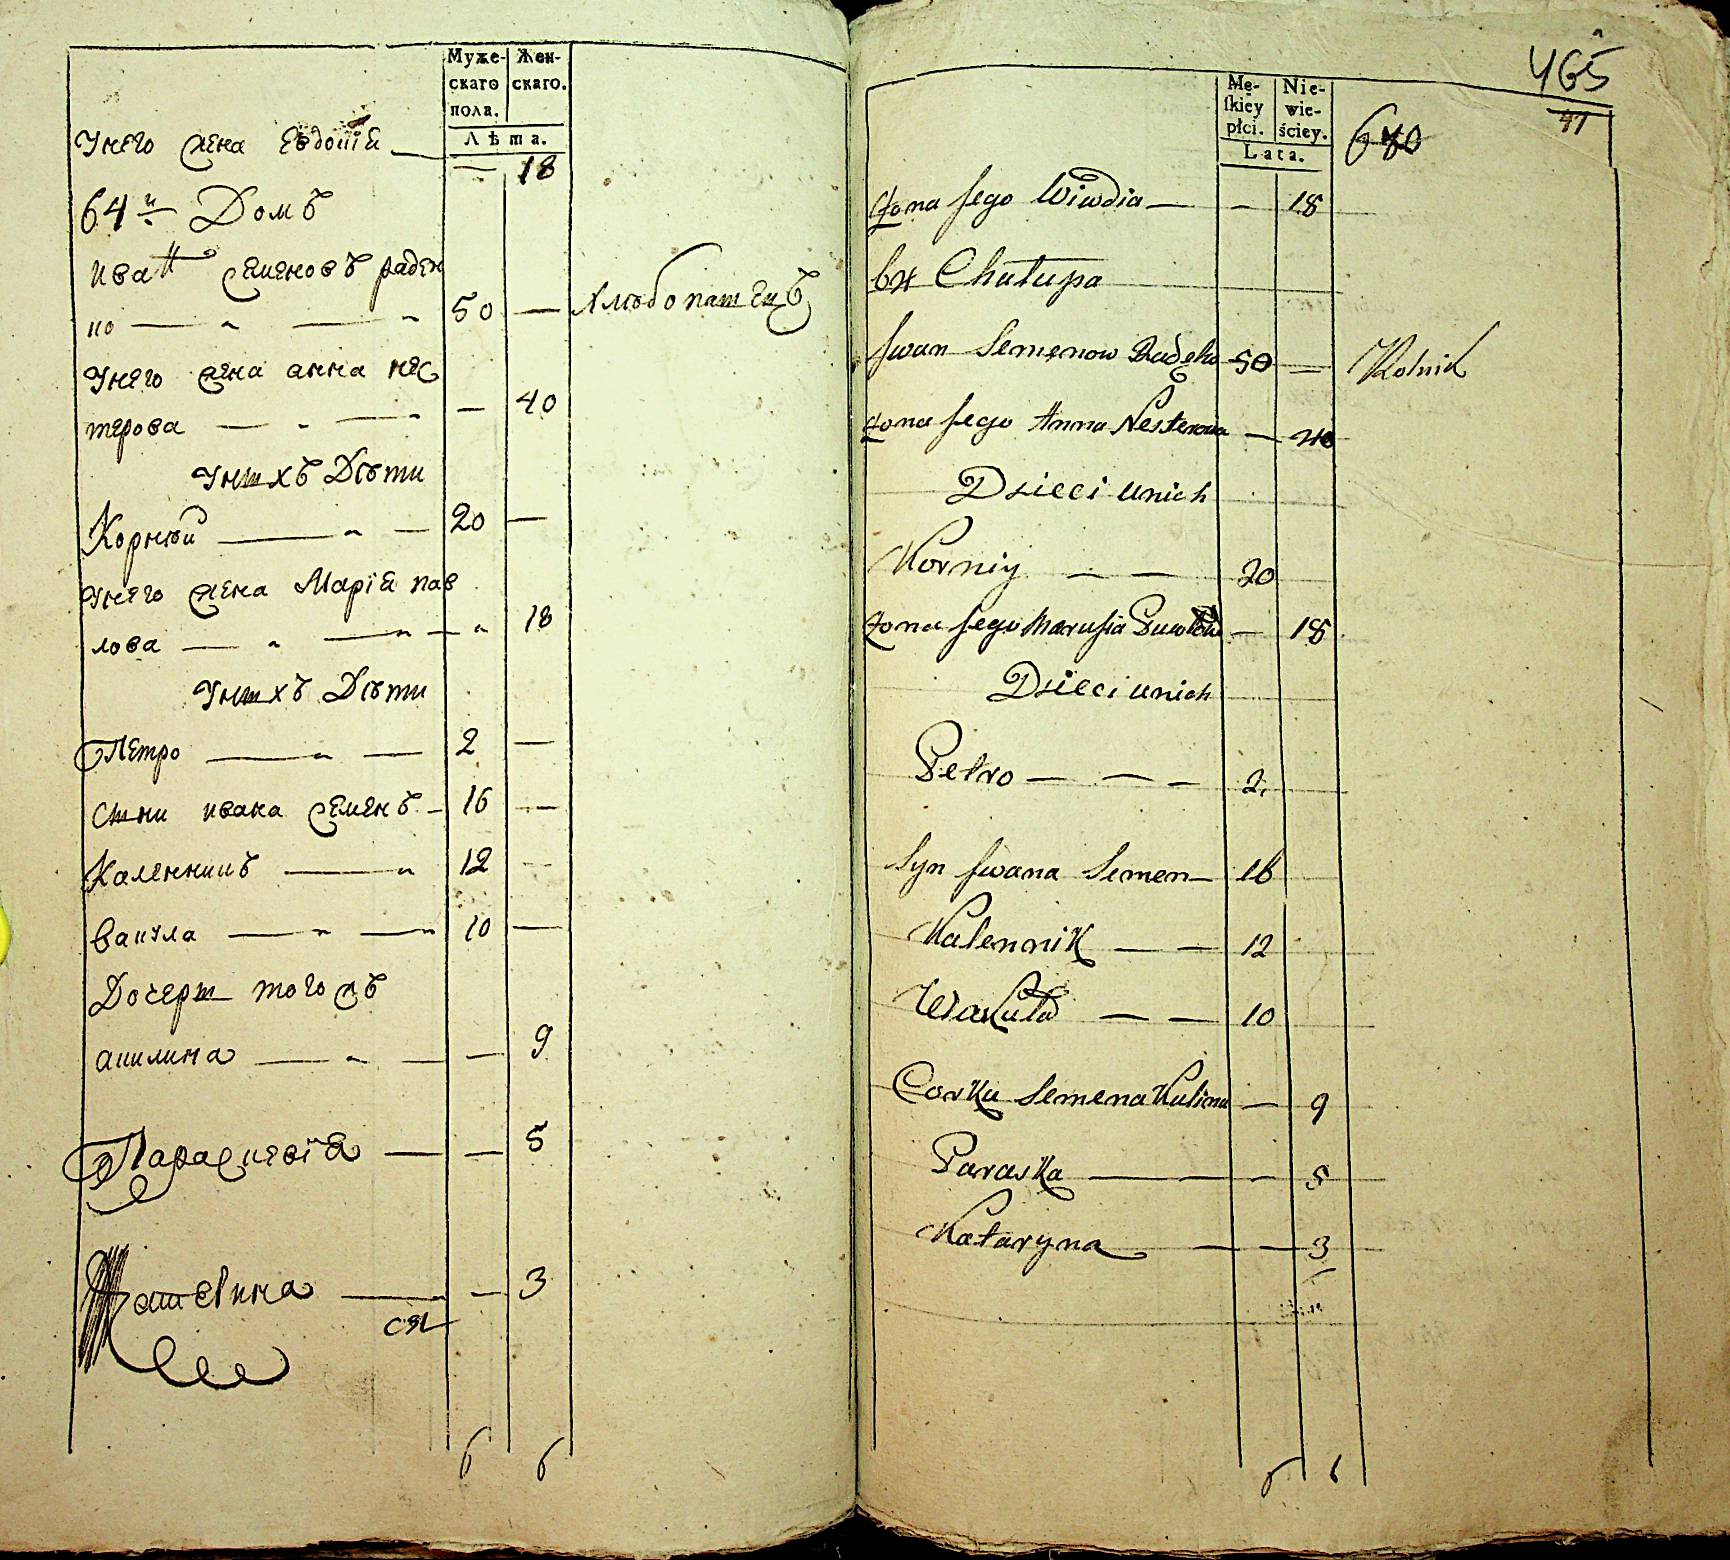 Муже-
скаго
пола.
Жен-
скаго.
Лѣта.
Унего жена Евдокіѧ — 18
64й Домъ
Иванъ Семеновъ раден
ко — 50 — хлѣбопашецъ
Унего жена анна нес
терова — 40
Унихъ Дѣти
Корнѣй — 20 —
Унего жена Маріѧ пав
лова — 18
Унихъ Дѣти
Петро — 2 —
Сини ивана Семенъ — 16 —
Каленникъ — 12 —
вакула — 10 —
Дочери того жъ
акилина — 9
Параскевіѧ — 5
Катерина — 3
6 6
465
41
Mę-
skiey
płci.
Nie-
wie-
ściey.
Lata.
680
żona Jego Wiwdia — 18
64 Chałupa
Jwan Semenow Radęko 50 — Rolnik
żona Jego Anna Nesterowa — 40
Dzieci unich
Korniy — — 20
żona Jego Marusia — 18
Dzieci unich
Petro — — — 2
Syn Jwana Semen — 16
Kalennik — — 12
Wakuła — — 10
Corka Semena Kulina — 9
Paraska — — — 5
Kataryna — — 3
6 6